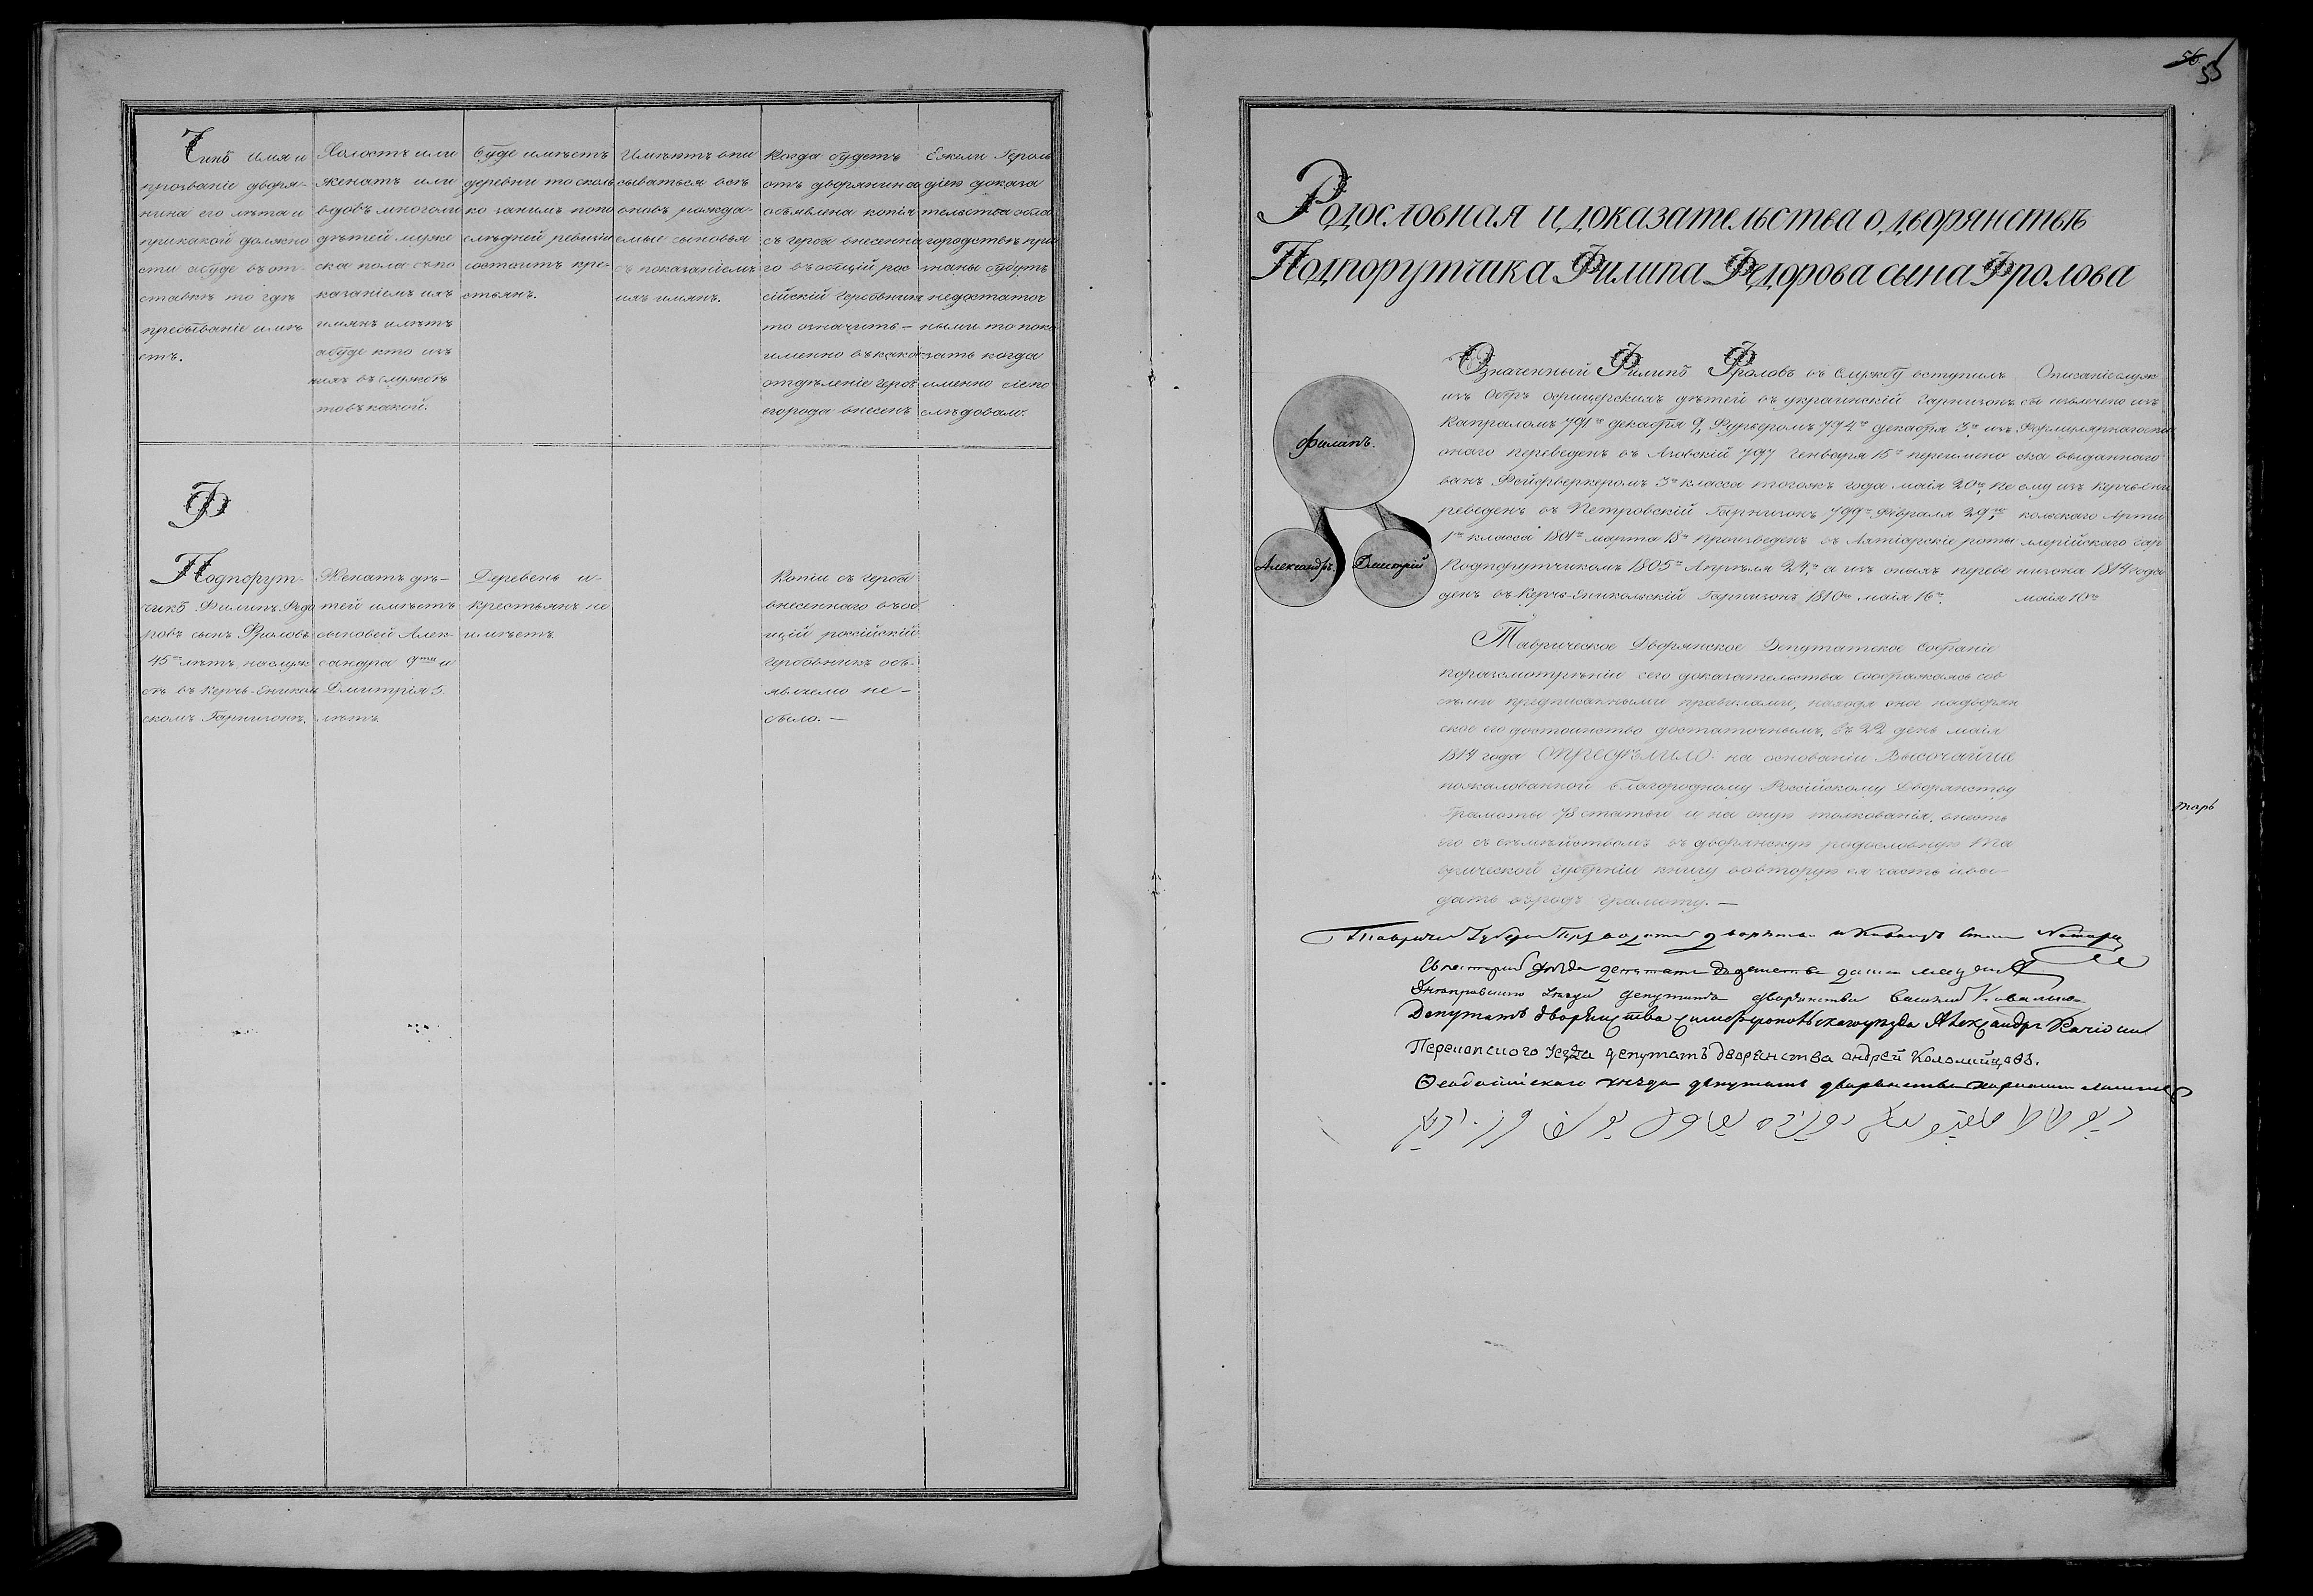 Чинъ имя и
прозваніе дворя-
нина его лѣта и
при какой должно
сти абуде въ от-
ставкѣ то гдѣ
пребываніе имѣ
етъ.
Холостъ или
женатъ или
вдовъ многоли
дѣтей муже
ска пола съ по
казаніемъ ихъ
имянъ и лѣтъ
абуде кто изъ
нихъ въ службѣ
то въ какой.
Буде имѣетъ
деревни то сколь
ко за нимъ по по
слѣдней ревизіи
состоитъ кре-
стьянъ.
Имѣютъ впи
сываться вся
вновь рожда-
емые сыновья
съ показаніемъ
ихъ имянъ.
Когда будетъ
отъ дворянина
объявлена копія
съ герба внесенна
го въ общій рос
сійскій гербовникъ
то означить –
именно въ какое
отдѣленіе герб
его рода внесенъ
Ежели Героль
діею доказа
тельства обла
городствѣ при
знаны будутъ
недостаточ
ными то пока
зать когда
именно сіе по
слѣдовало.
Ф
Подпорут-
чикъ Филипъ Федо
ровъ сынъ Фроловъ
45ти лѣтъ на служ
бѣ въ Керчь-Ениколь
скомъ Гарнизонѣ.
Женатъ дѣ-
тей имѣетъ
сыновей Алек-
сандра 9ти и
Дмитрія 3.
лѣтъ
Деревень и-
крестьянъ не
имѣетъ
Копіи съ герба
внесеннаго въ об
щій россійскій
гербовникъ объ-
явлено не-
было. —
56
55
Родословная и доказательства о дворянствѣ
Подпорутчика Филипа Федорова сына Фролова
Филипъ.
Александръ.
Дмитрій
Означенный Филипъ Фроловъ въ службу вступилъ
изъ Оберъ офицерскихъ дѣтей въ украинскій Гарнизонъ
Капраломъ 791го декабря 9, Фурьеромъ 794го декабря 3го, изъ
онаго переведенъ въ Азовскій 797 Генваря 15го переимено
ванъ Фейфверкеромъ 3го класса тогожъ года маія 20го, пе
реведенъ въ Петровскій Гарнизонъ 799го Февраля 29го,
1го класса 1801го марта 18го произведенъ въ Ахтіарскіе роты
Подпорутчикомъ 1805го Апрѣля 24го, а изъ оныхъ переве
денъ въ Керчь-Еникольскій Гарнизонъ 1810го маія 16го.
Описаніе служ
бы извлечено изъ
Формулярнаго спи
ска выданнаго
ему изъ Керчь-Ени
кольскаго Арти
лерійскаго гар
низона 1814 года
маія 10го
Таврическое Дворянское Депутатское собраніе
по разсмотрѣніи сего доказательства соображаясь со
всѣми предписанными правилами, находя оное на дворян
ское его достоинство достаточнымъ, въ 22 день маія
1814 года Опредѣлило: на основаніи Высочайше
пожалованной Благородному Россійскому Дворянству
Грамоты 78 статьи и на оную толкованія, внесть
его съ сѣмѣйствомъ въ дворянскую родословную Та
врической губерніи книгу во вторую ея часть и вы-
дать въ родъ грамоту. —
тарь
депутатъ
Днепровскаго уезда депутатъ дворянства василей
Депутатъ дворянства симферопольскаго уезда Александръ
Перекопского уезда депутатъ дворянства андрей Коломийцовъ.
Феодосийскаго уезда депутатъ дворянства